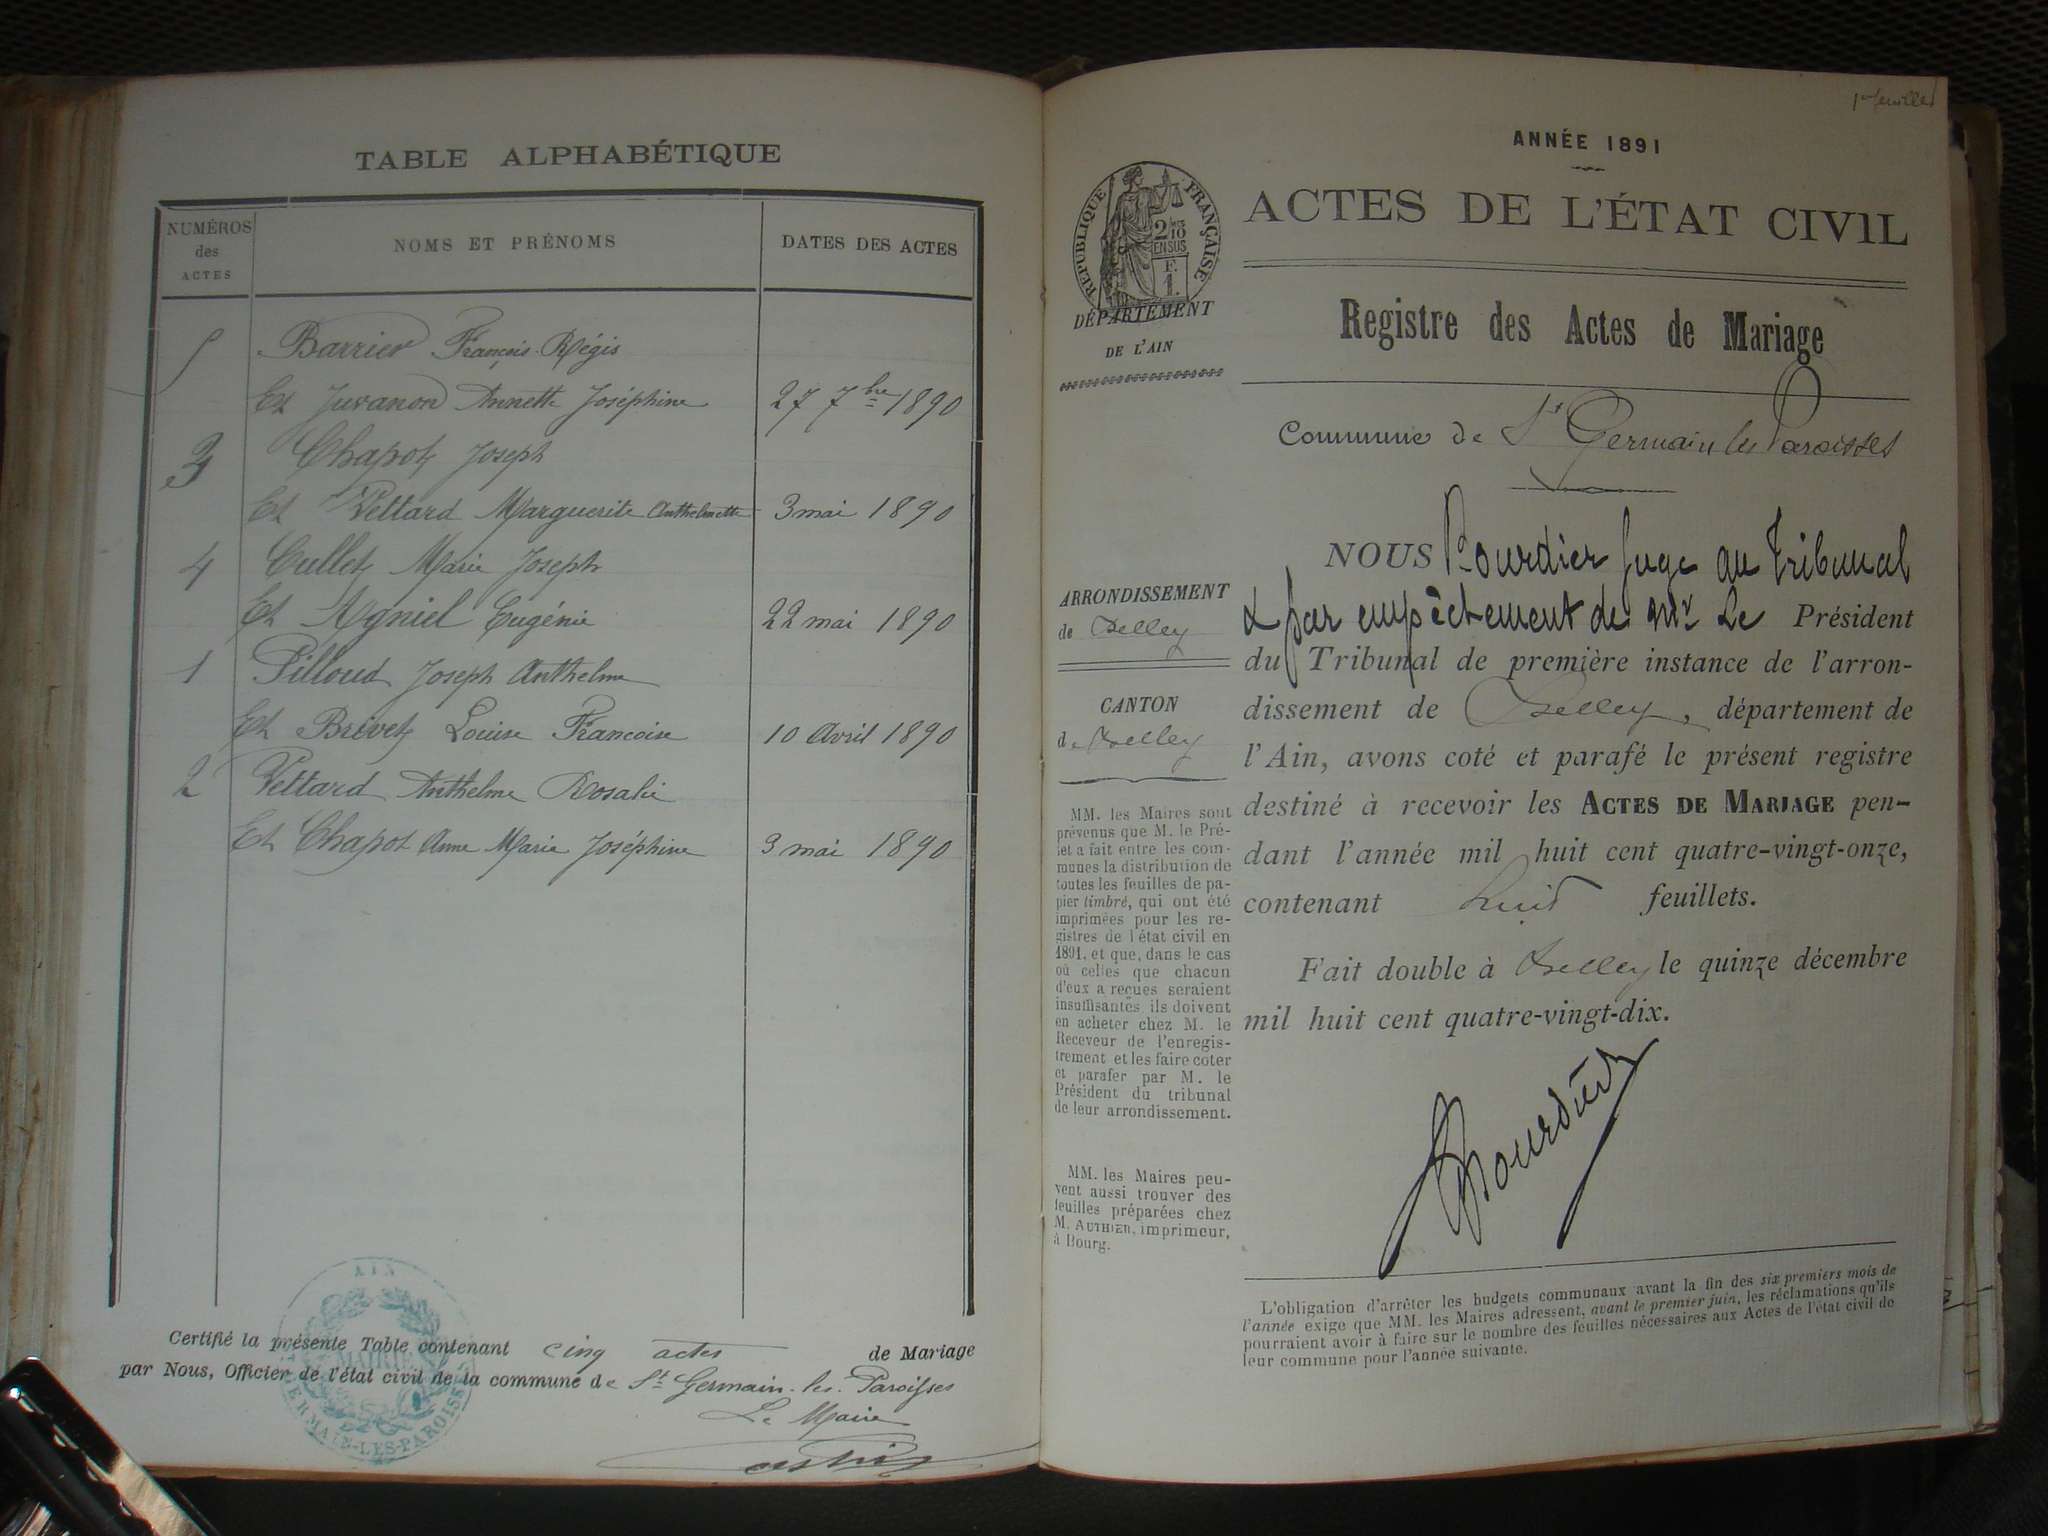 TABLE ALPHABÉTIQUE
NUMÉROS des ACTES
NOMS ET PRÉNOMS
DATES DES ACTES
5 Barrier François-Régis
Et Juvanon Annette Joséphine 27 7bre 1890
3 Chapot Joseph
Et Vettard Marguerite Anthelmette 3 mai 1890
4 Cullet Marie Joseph
Et Agniel Eugénie 22 mai 1890
1 Pilloud Joseph Anthelme
Et Brivet Louise Francoise 10 Avril 1890
2 Vettard Anthelme Rosalie
Et Chapot Anne Marie Joséphine 3 mai 1890
Certifié la présente Table contenant cinq actes de Mariage
par Nous, Officier de l'état civil de la commune de St Germain-les-Paroisses
Le Maire
AIN
MAIRIE
GERMAIN-LES-PAROISSES
ANNÉE 1891
ACTES DE L'ÉTAT CIVIL
RÉPUBLIQUE FRANÇAISE
2/10
EN SUS
F.
1.
DÉPARTEMENT
DE L'AIN
Registre des Actes de Mariage
Commune de St Germain les Paroisses
ARRONDISSEMENT
de Belley
CANTON
de Belley
MM. les Maires sont
prévenus que M. le Pré-
fet a fait entre les com-
munes la distribution de
toutes les feuilles de pa-
pier timbré, qui ont été
imprimées pour les re-
gistres de l'état civil en
1891, et que, dans le cas
où celles que chacun
d'eux a reçues seraient
insuffisantes ils doivent
en acheter chez M. le
Receveur de l'enregis-
trement et les faire coter
et parafer par M. le
Président du tribunal
de leur arrondissement.
MM. les Maires peu-
vent aussi trouver des
feuilles préparées chez
M. AUTHIER, imprimeur,
à Bourg.
NOUS Bourdier Juge au Tribunal
& par empêchement de Mr Le Président
du Tribunal de première instance de l'arron-
dissement de Belley, département de
l'Ain, avons coté et parafé le présent registre
destiné à recevoir les ACTES DE MARIAGE pen-
dant l'année mil huit cent quatre-vingt-onze,
contenant huit feuillets.
Fait double à Belley le quinze décembre
mil huit cent quatre-vingt-dix.
Bourdier
L'obligation d'arrêter les budgets communaux avant la fin des six premiers mois de
l'année exige que MM. les Maires adressent, avant le premier juin, les réclamations qu'ils
pourraient avoir à faire sur le nombre des feuilles nécessaires aux Actes de l'état civil de
leur commune pour l'année suivante.